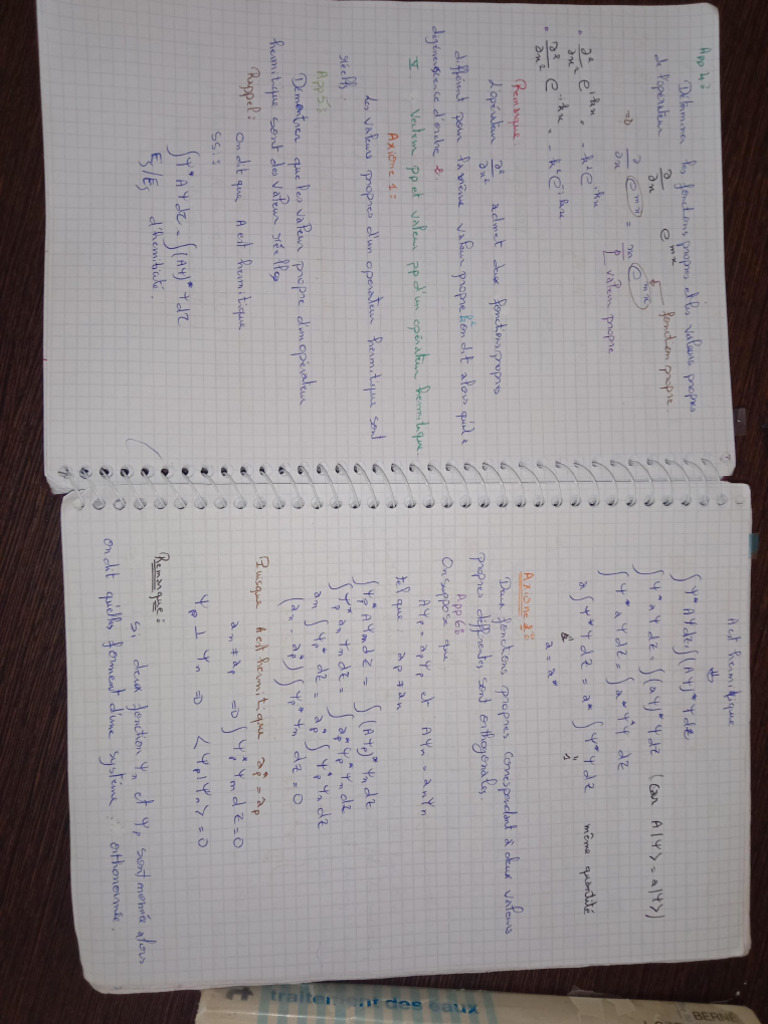 App 4: Déterminer les fonctions propres et les valeurs propres
de l'opérateur ∂/∂x e^{mx} fonction propre
=> ∂/∂x (e^{mx}) = m (e^{mx})
valeur propre
• ∂²/∂x² e^{ikx} = -k² e^{ikx}
• ∂²/∂x² e^{-ikx} = -k² e^{-ikx}
Remarque
L'opérateur ∂²/∂x² admet deux fonctions propres
différent pour la même valeur propre on dit alors qu'il a
dégénérescence d'ordre 2.
V Vecteur pp et valeur pp d'un opérateur hermitique
Axiome 1:
Les valeurs propres d'un operateur hermitique sont
réels.
App 5:
Démontrer que les valeur propre d'un opérateur
hermitique sont des valeur réelles
Rappel: on dit que A est hermitique
ssi:
∫ψ* A ψ dz = ∫(Aψ)* ψ dz
d'hermitiaté.
A est hermitique
∫ψ* Aψ dz = ∫(Aψ)* ψ dz
∫ψ* a ψ dz = ∫(aψ)* ψ dz (car A|ψ> = a|ψ>)
∫ψ* a ψ dz = ∫a* ψ* ψ dz
a ∫ψ* ψ dz = a* ∫ψ* ψ dz même quantité
a = a*
Axiome 2:
Deux fonctions propres correspondant à deux valeurs
propres différentes sont orthogonales
App 6:
On suppose que
Aψp = apψp et Aψn = anψn
tel que: ap ≠ an
∫ψp* Aψn dz = ∫(Aψp)* ψn dz
∫ψp* an ψn dz = ∫ap* ψp* ψn dz
an ∫ψp* ψn dz = ap* ∫ψp* ψn dz
(an - ap*) ∫ψp* ψn dz = 0
Puisque A est hermitique ap* = ap
an ≠ ap => ∫ψp* ψn dz = 0
ψp ⊥ ψn => <ψp|ψn> = 0
Remarque:
Si deux fonction ψn et ψp sont normée alors
on dit qu'elles forment d'une système: orthonormée.
traitement des eaux
BERNÉ